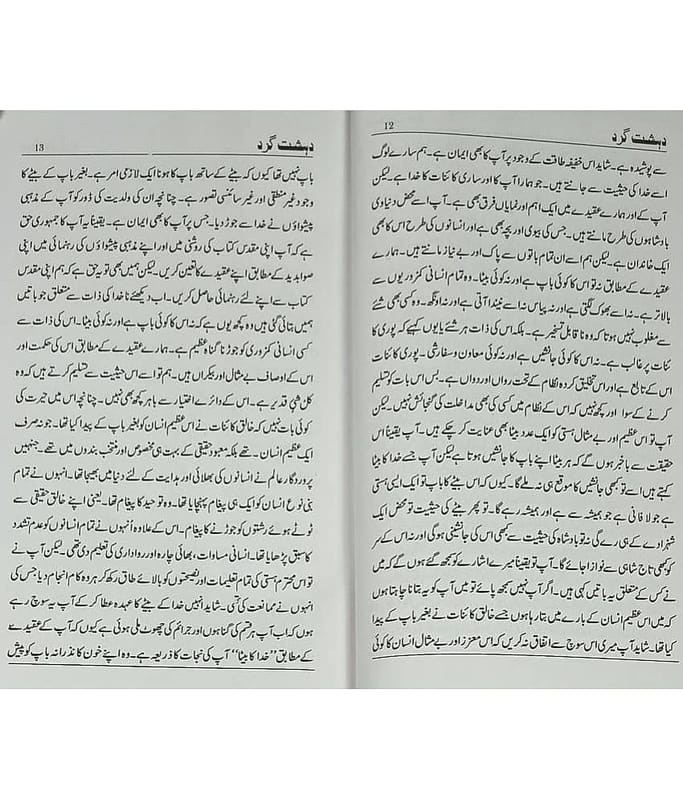 دہشت گرد 12
سے پوشیدہ ہے۔ شاید اس خفیفہ طاقت کے وجود پر آپ کا بھی ایمان ہے۔ ہم سارے لوگ
اسے خدا کی حیثیت سے جانتے ہیں۔ جو ہمارا آپ کا اور ساری کائنات کا خدا ہے لیکن
آپ کے اور ہمارے عقیدے میں ایک اہم اور نمایاں فرق بھی ہے۔ آپ اسے محض دنیاوی
بادشاہوں کی طرح مانتے ہیں۔ جس کی بیوی اور بچہ بھی ہے اور انسانوں کی طرح اس کا بھی
ایک خاندان ہے۔ لیکن ہم اسے ان تمام باتوں سے پاک اور بے نیاز مانتے ہیں۔ ہمارے
عقیدے کے مطابق نہ تو اس کا کوئی باپ ہے اور نہ کوئی بیٹا۔ وہ تمام انسانی کمزوریوں سے
بالاتر ہے۔ نہ اسے بھوک لگتی ہے اور نہ پیاس نہ اسے نیند آتی ہے اور نہ اونگھ۔ وہ کسی بھی شئے
سے مغلوب نہیں ہوتا کہ وہ نا قابل تسخیر ہے۔ بلکہ اس کی ذات ہر شئے یا یوں کہیے کہ پوری کا
ئنات پر غالب ہے۔ نہ اس کا کوئی جانشیں ہے اور نہ کوئی معاون و سفارشی۔ پوری کائنات
اس کے تابع ہے اور اس تخلیق کردہ نظام کے تحت رواں اور دواں ہے۔ بس اس بات کو تسلیم
کرنے کے سوا اور کچھ نہیں کہ اس کے نظام میں کسی کی بھی مداخلت کی گنجائش نہیں۔ لیکن
آپ تو اس عظیم اور بے مثال ہستی کو ایک عدد بیٹا بھی عنایت کر چکے ہیں۔ آپ یقیناً اس
حقیقت سے باخبر ہوں گے کہ ہر بیٹا اپنے باپ کا جانشیں ہوتا ہے لیکن آپ جسے خدا کا بیٹا
کہتے ہیں اسے تو بھی جانشیں کا موقع ہی نہ ملے گا۔ کیوں کہ اس بیٹے کا باپ تو ایک ایسی ہستی
ہے جو لا فانی ہے جو ہمیشہ سے ہے اور ہمیشہ رہے گا۔ تو پھر بیٹے کی حیثیت تو محض ایک
شہزادے کے ہی رہے گی نہ تو بادشاہ کی حیثیت سے کبھی اس کی جانشینی ہوگی اور نہ اس کے سر
کو کبھی تاج شاہی سے نوازا جائے گا۔ آپ تو یقیناً میرے اشارے کو سمجھ گئے ہوں گے کہ میں
نے کس کے متعلق یہ باتیں کہی ہیں۔ اگر آپ نہیں سمجھ پائے تو میں آپ کو یہ بتانا چاہتا ہوں
کہ میں اس عظیم انسان کے بارے میں بتا رہا ہوں جسے خالق کائنات نے بغیر باپ کے پیدا
کیا تھا۔ شاید آپ میری اس سوچ سے اتفاق نہ کریں کہ اس معزز اور بے مثال انسان کا کوئی
دہشت گرد 13
باپ نہیں تھا کیوں کہ بیٹے کے ساتھ باپ کا ہونا ایک لازمی امر ہے۔ بغیر باپ کے بیٹے کا
وجود غیر منطقی اور غیر سائنسی تصور ہے۔ چنانچہ ان کی ولدیت کی ڈور کو آپ کے مذہبی
پیشواؤں نے خدا سے جوڑ دیا۔ جس پر آپ کا بھی ایمان ہے۔ یقیناً یہ آپ کا جمہوری حق
ہے کہ آپ اپنی مقدس کتاب کی روشنی میں اور اپنے مذہبی پیشواؤں کی رہنمائی میں اپنی
صوابدید کے مطابق اپنے عقیدے کا تعین کریں۔ لیکن ہمیں بھی تو یہ حق ہے کہ ہم اپنی مقدس
کتاب سے اپنے لئے رہنمائی حاصل کریں۔ اب دیکھئے نا خدا کی ذات سے متعلق جو باتیں
ہمیں بتائی گئی ہیں وہ کچھ یوں ہے کہ نہ اس کا کوئی باپ ہے اور نہ کوئی بیٹا۔ اس کی ذات سے
کسی انسانی کمزوری کو جوڑنا گناہ عظیم ہے۔ ہمارے عقیدے کے مطابق اس کی حکمت اور
اس کے اوصاف بے مثال اور بیکراں ہیں۔ ہم تو اسے اس حیثیت سے تسلیم کرتے ہیں کہ وہ
کل شئی قدیر ہے۔ اس کے دائرے اختیار سے باہر کچھ بھی نہیں۔ چنانچہ اس میں حیرت کی
کوئی بات نہیں کہ خالق کائنات نے اس عظیم انسان کو بغیر باپ کے پیدا کیا تھا۔ جو نہ صرف
ایک عظیم انسان۔ تھے بلکہ معبود حقیقی کے بہت ہی مخصوص اور منتخب بندوں میں تھے۔ جنہیں
پروردگار عالم نے انسانوں کی بھلائی اور ہدایت کے لئے دنیا میں بھیجا تھا۔ انہوں نے تمام
بنی نوع انسان کو ایک ہی پیغام پہنچایا تھا۔ وہ توحید کا پیغام تھا۔ یعنی اپنے خالق حقیقی سے
ٹوٹے ہوئے رشتوں کو جوڑنے کا پیغام۔ اس کے علاوہ انہوں نے تمام انسانوں کو عدم تشدد
کا سبق پڑھایا تھا۔ انسانی مساوات، بھائی چارہ اور رواداری کی تعلیم دی تھی۔ لیکن آپ نے
تو اس محترم ہستی کی تمام تعلیمات اور نصیحتوں کو بالائے طاق رکھ کر ہر وہ کام انجام دیا جس کی
انہوں نے ممانعت کی تھی۔ شاید انہیں خدا کے بیٹے کا عہدہ عطا کر کے آپ یہ سوچ رہے
ہوں کہ اب آپ ہر قسم کی گناہوں اور جرائم کی چھوٹ ملی ہوئی ہے کیوں کہ آپ کے عقیدے
کے مطابق ''خدا کا بیٹا'' آپ کی نجات کا ذریعہ ہے۔ وہ اپنے خون کا نذرانہ باپ کو پیش